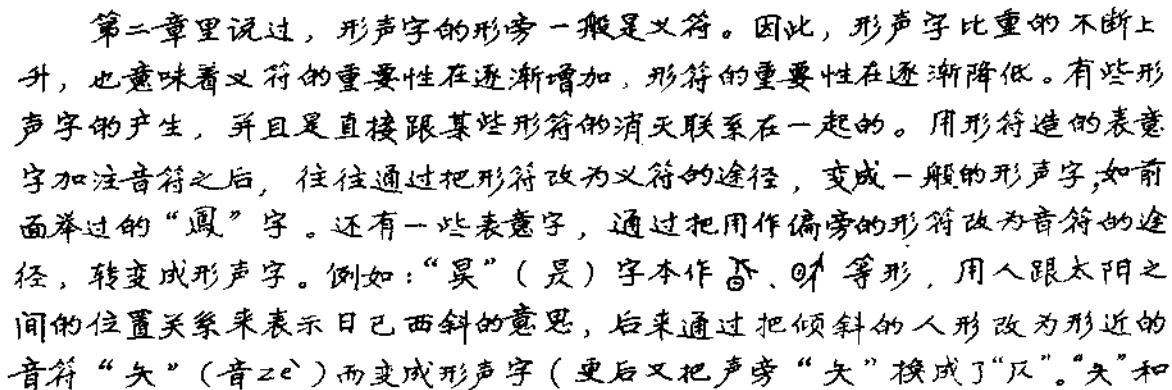 第二章里说过，形声字的形旁一般是义符。因此，形声字比重的不断上
升，也意味着义符的重要性在逐渐增加，形符的重要性在逐渐降低。有些形
声字的产生，并且是直接跟某些形符的消灭联系在一起的。用形符造的表意
字加注音符之后，往往通过把形符改为义符的途径，变成一般的形声字，如前
面举过的“鳳”字。还有一些表意字，通过把用作偏旁的形符改为音符的途
径，转变成形声字。例如：“昃”（昃）字本作、等形，用人跟太阳之
间的位置关系来表示日已西斜的意思，后来通过把倾斜的人形改为形近的
音符“夨”（音zè）而变成形声字（更后又把声旁“夨”换成了“仄”。“夨”和